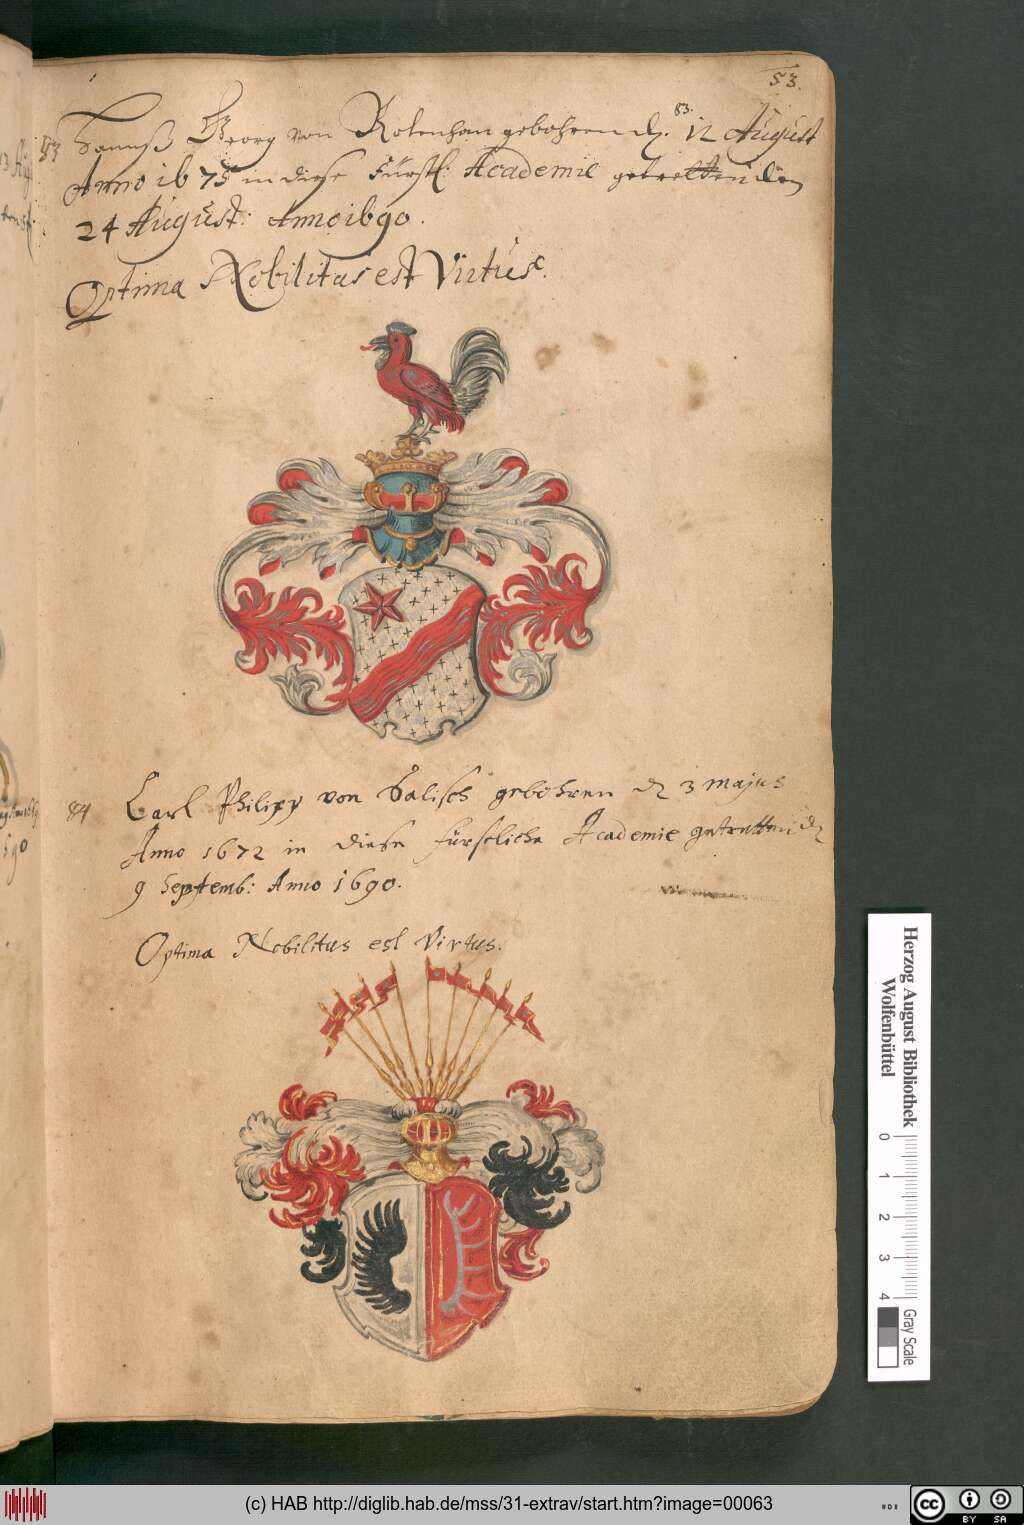 53.
83.
83 Hannß Georg von Rotenhan gebohren d. 12 August
Anno 1675 in diese Fürstl: Academie getretten den
24 August: Anno 1690.
Optima Nobilitas est Virtus.
84 Carl Philipp von Salisch gebohren d 3 majus
Anno 1672 in diese fürstliche Academie getretten d
9 Septemb: Anno 1690.
Optima Nobilitas est Virtus.
Herzog August Bibliothek
Wolfenbüttel
0 1 2 3 4
Gray Scale
(c) HAB http://diglib.hab.de/mss/31-extrav/start.htm?image=00063
cc BY SA